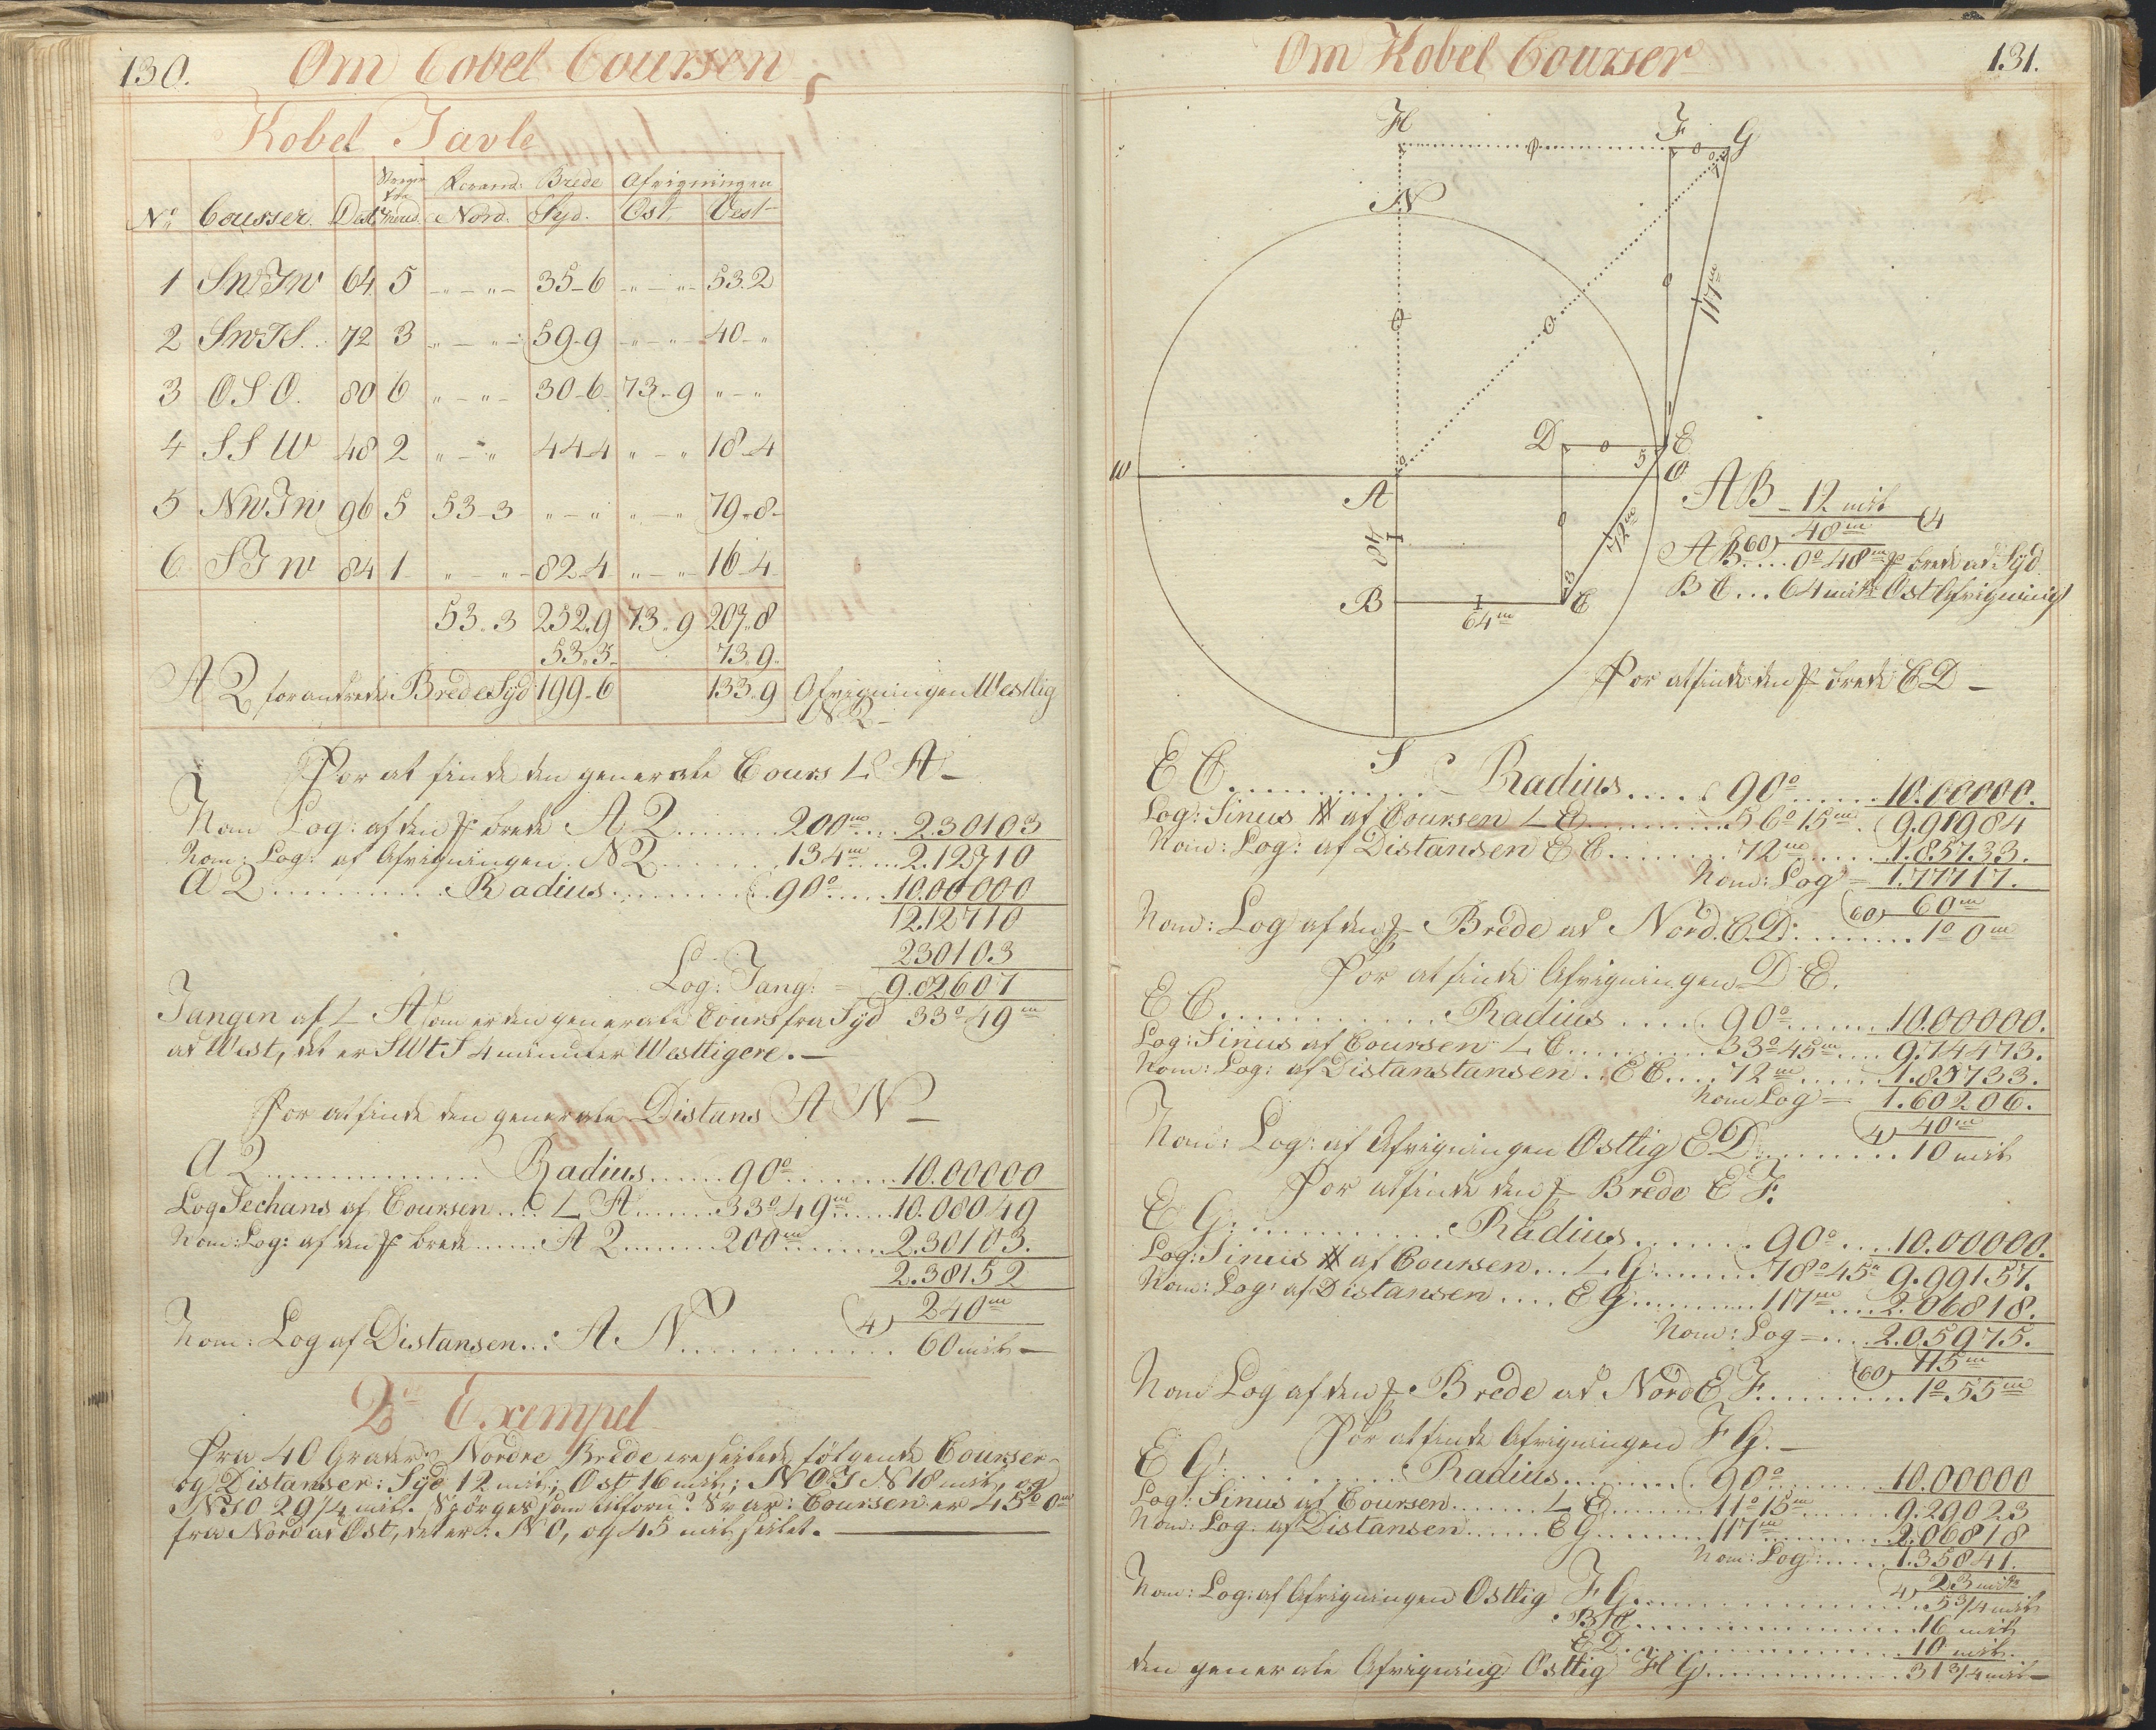 130.
Om Cobel Coursen
Kobel Tavle
Forand: Brede Afvigningen
No Courser. Dist: Nord. Syd. Ost Vest
1 SWTW 64 5 -"-"- 35-6 -"-"- 53.2
2 SWTS. 72 3 "-"- 59-9 -"-"- 40-"
3 OSO. 80 6 "-"- 30-6 73-9 "-"
4 SSW 48 2 "-" 44-4 "-" 18-4
5 NWTW 96 5 53-3 "-" "-" 79-8-
6 STW 84 1 "-"- 82-4 "-"- 16-4
53.3 252.9 73.9 207.8
53.3. 73.9.
A2 forandrede Brede Syd 199-6 133.9 Afvigningen Westlig
N.2-
For at finde den generale Cours L A-
Nom Log: af den brede A2 ........ 200m .... 2.30103
Nom: Log: af Afvigningen. N2 ........ 134m ..... 2.12710
A2 ............ Radius .......... 90° ..... 10.00000
12.12710
2.30103
Log: Tang: = 9.82607
Tangen af L A som er den generale Cours fra Syd 33° 49m
ad West, det er SWtS 4 minuter Westligere. —
For at finde den generale Distans A N —
A2 ................ Radius ...... 90° ......... 10.00000
Log Sechans af Coursen .... L A ....... 33° 49m ...... 10.08049
Nom: Log: af den brede ...... A2 ........ 200m ........ 2.30103.
2.38152
4) 240m
Nom: Log af Distansen..: A. N ............ 60 mil —
2det Exempel
Fra 40 Grader Nordre Brede ere seilede følgende Courser
og Distanser: Syd 12 mil; Ost 16 mil; NOTN 18 mil, og
NTO 29 1/4 mil. Spørges som tilforn? Svar: Coursen er 45° 0m
fra Nord ad Ost, det er: NO, og 45 mil seilet. —
Om Kobel Courser
131.
H F G
N
117m
D E
5
W A O
48
72m
3
B C
64m
S
AB - 12 mil
4
60) 48m
AB.... 0° 48m brede ad Syd
BC... 64 mil Ost Afvigning
For at finde den brede CD —
EC ............ Radius ..... 90° ...... 10.00000.
Log: Sinus af Coursen L E .......... 56° 15m . 9.91984
Nom: Log: af Distansen EC ........ 72m ...... 1.85733.
Nom: Log = 1.77717.
60) 60m
Nom: Log af den Brede ad Nord. CD: ......... 1° 0m
For at finde Afvigningen D E.
EC ............ Radius ..... 90° ....... 10.00000.
Log: Sinus af Coursen L C .......... 33° 45m .... 9.74473.
Nom: Log: af Distanstansen .. EC .... 72m ...... 1.85733.
Nom Log = 1.60206.
4) 40m
Nom: Log: af Afvigningen Ostlig ED .......... 10 mil
For at finde den Brede E F.
EG: ............ Radius ....... 90° .... 10.00000.
Log: Sinus af Coursen ... L G ....... 78° 45m 9.99157.
Nom: Log: af Distansen .... EG ......... 117m .... 2.06818.
Nom: Log = .... 2.05975.
60) 115m
Nom Log af den Brede ad Nord E F. ......... 1° 55m
For at finde Afvigningen F G. —
EG: ......... Radius ........ 90° ........ 10.00000
Log: Sinus af Coursen ....... L E ....... 11° 15m ...... 9.29023
Nom: Log af Distansen ...... EG ....... 117m ........ 2.06818
Nom: Log: .... 1.35841.
4) 23 mil
Nom: Log: af Afvigningen Ostlig F G ............... 5 3/4 mil
BC ................ 16 mil
ED ............... 10 mil.
den generale Afvigning Ostlig H G ........... 31 3/4 mil —